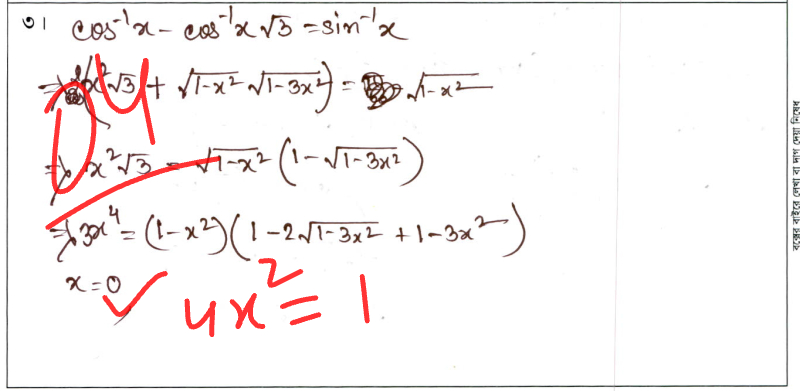 ৩। cos⁻¹x - cos⁻¹x√3 = sin⁻¹x
⇒ (x²√3 + √(1-x²) √(1-3x²)) = √(1-x²)
⇒ x²√3 = √(1-x²) (1 - √(1-3x²))
⇒ 3x⁴ = (1-x²)(1 - 2√(1-3x²) + 1 - 3x²)
x = 0
4x² = 1
04
বক্সের বাইরে লেখা বা দাগ দেয়া নিষেধ